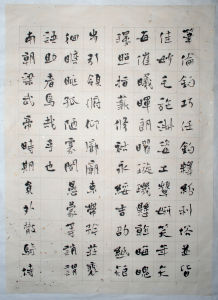 筆倫紙鈞巧任釣釋紛利俗並
皆佳妙毛施淑姿工顰妍笑年
矢每催曦暉朗曜璇璣懸斡晦
魄環照指薪修祜永綏吉劭矩
步引領俯仰廊廟束帶矜莊徘
徊瞻眺孤陋寡聞愚蒙等誚謂
語助者焉哉乎也
南朝梁武帝時期員外散騎侍